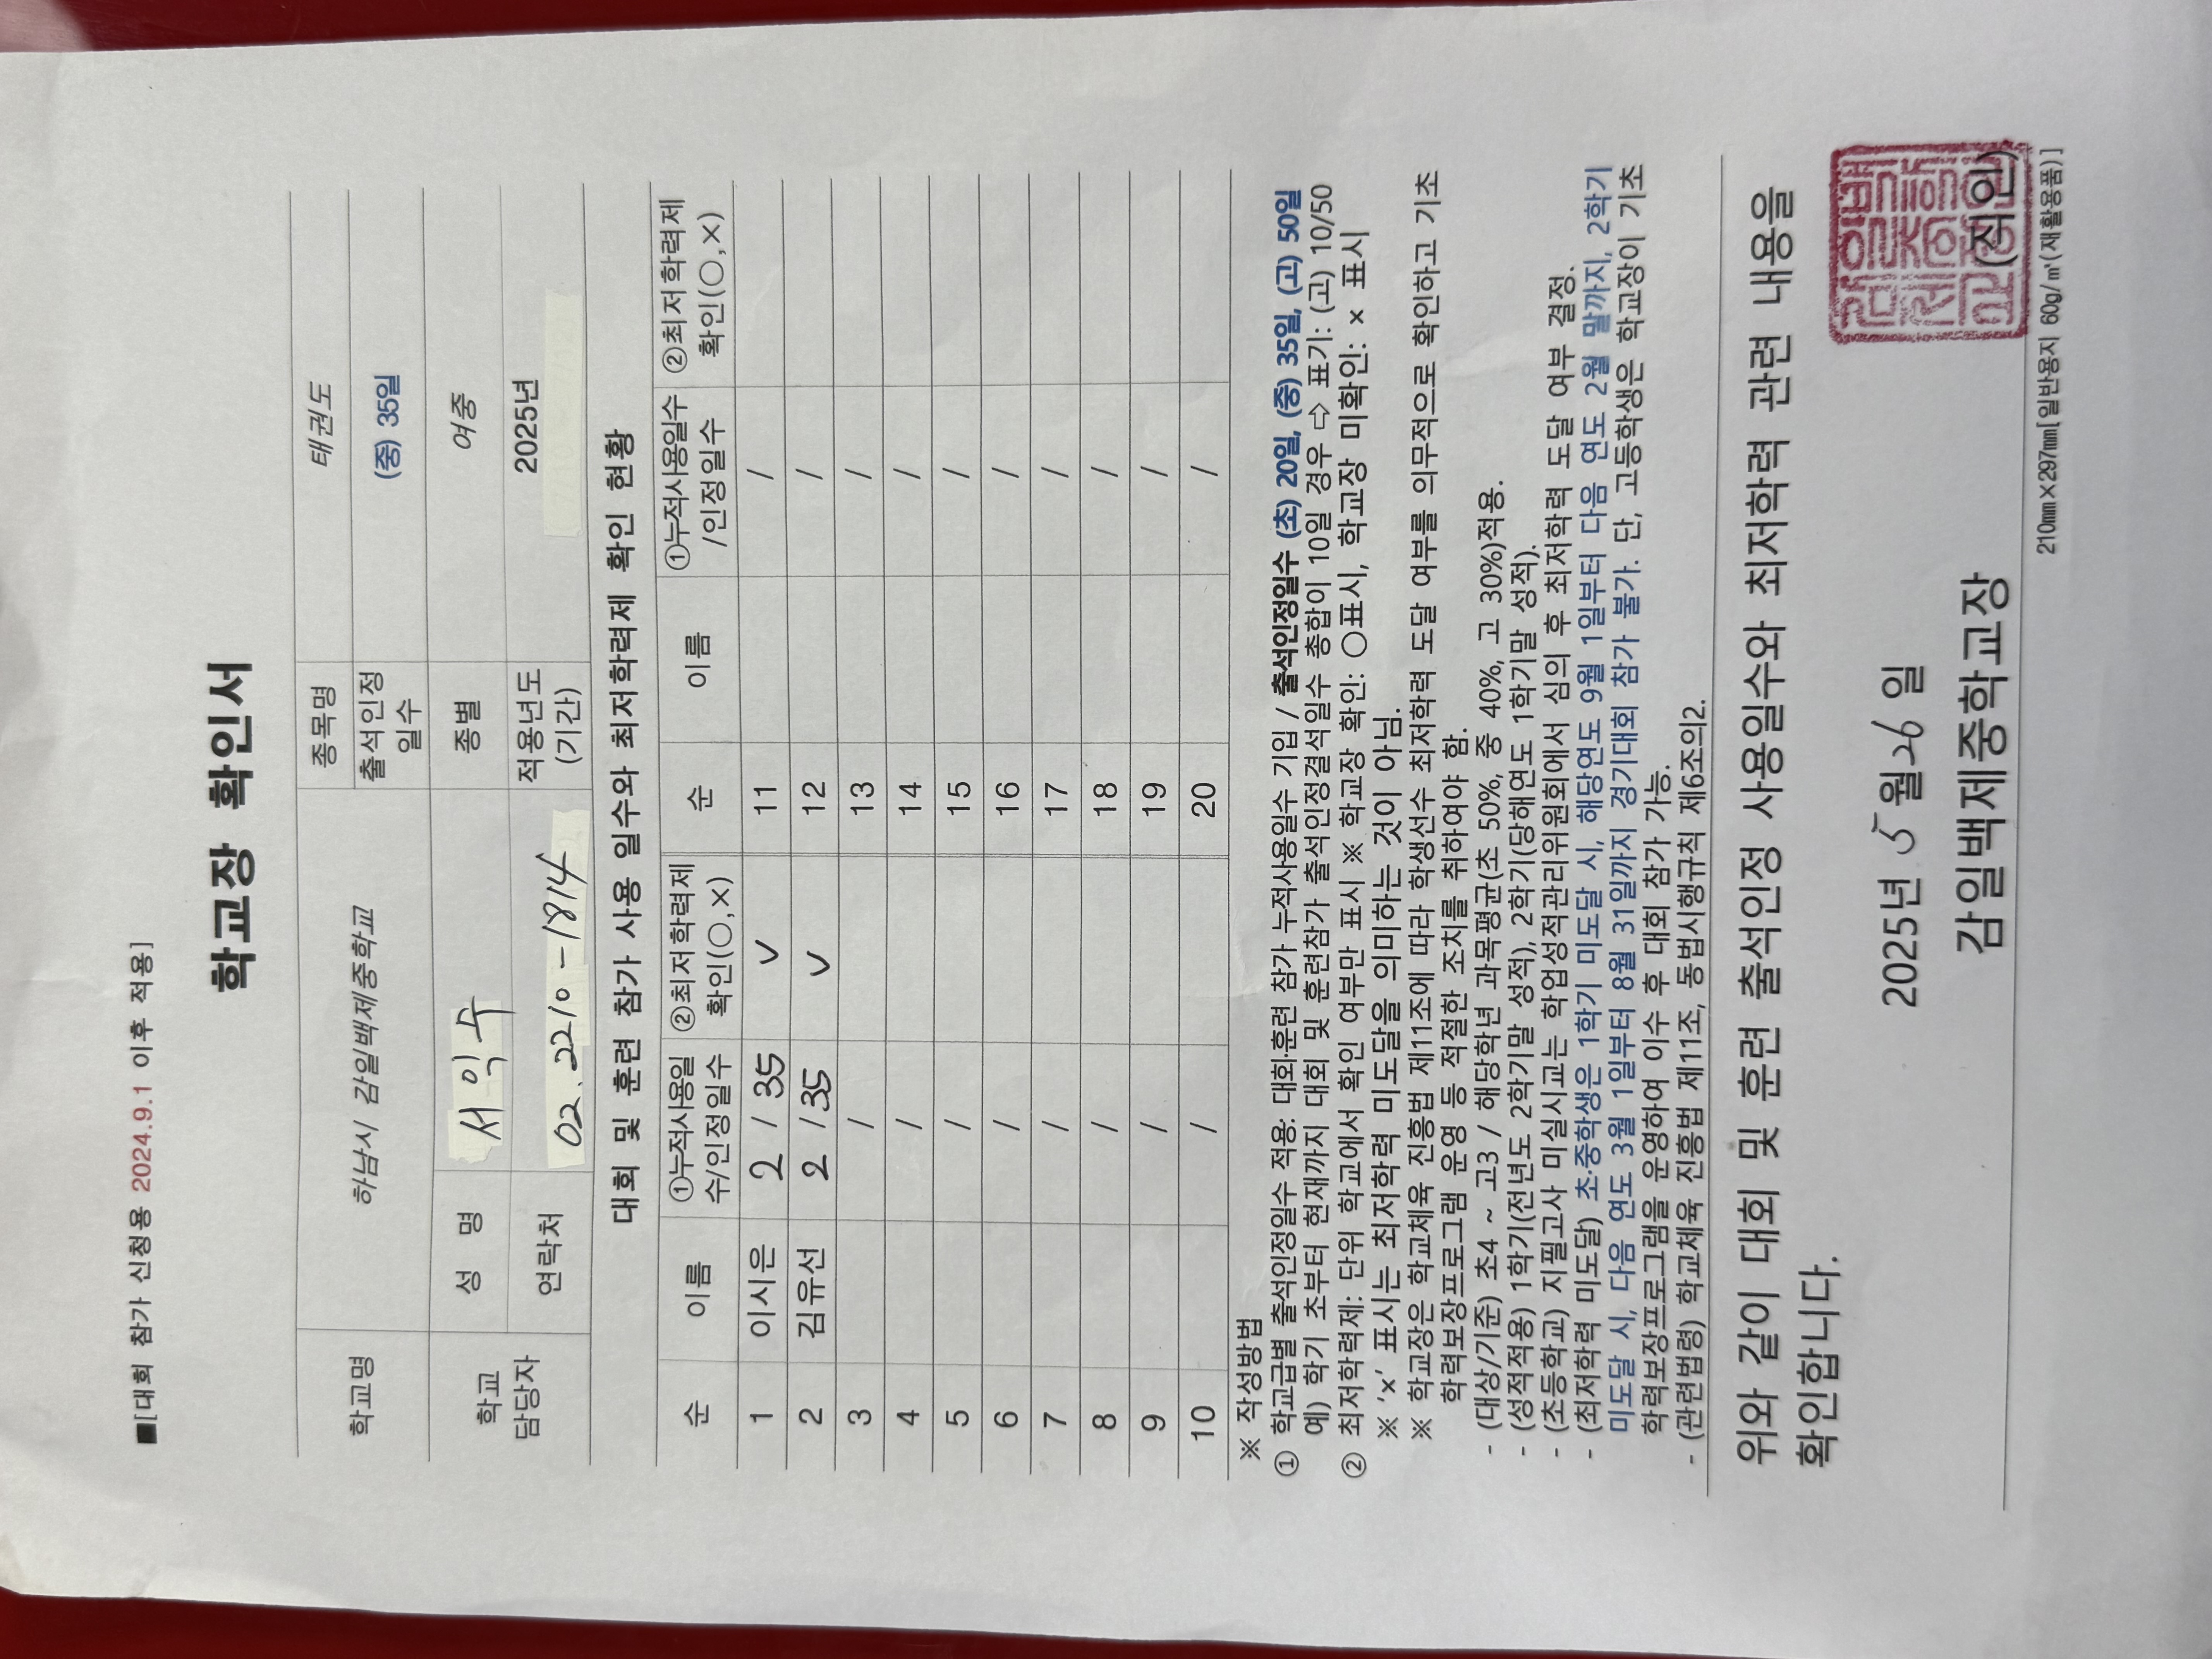 ■[대회 참가 신청용 2024.9.1 이후 적용]
학교장 확인서
학교명 하남시 감일백제중학교 종목명 태권도
출석인정 일수 (중) 35일
학교 담당자 성 명 서익수 종별 여중
연락처 02.2210-1814 적용년도 (기간) 2025년
대회 및 훈련 참가 사용 일수와 최저학력제 확인 현황
순 이름 ①누적사용일수/인정일수 ②최저학력제 확인(○,×) 순 이름 ①누적사용일수/인정일수 ②최저학력제 확인(○,×)
1 이시은 2 / 35 ∨ 11 /
2 김유선 2 / 35 ∨ 12 /
3 / 13 /
4 / 14 /
5 / 15 /
6 / 16 /
7 / 17 /
8 / 18 /
9 / 19 /
10 / 20 /
※ 작성방법
① 학교급별 출석인정일수 적용: 대회·훈련 참가 누적사용일수 기입 / 출석인정일수 (초) 20일, (중) 35일, (고) 50일
예) 학기 초부터 현재까지 대회 및 훈련참가 출석인정결석일수 총합이 10일 경우 ⇨ 표기: (고) 10/50
② 최저학력제: 단위 학교에서 확인 여부만 표시 ※ 학교장 확인: ○표시, 학교장 미확인: × 표시
※ '×' 표시는 최저학력 미도달을 의미하는 것이 아님.
※ 학교장은 학교체육 진흥법 제11조에 따라 학생선수 최저학력 도달 여부를 의무적으로 확인하고 기초
학력보장프로그램 운영 등 적절한 조치를 취하여야 함.
- (대상/기준) 초4 ~ 고3 / 해당학년 과목평균(초 50%, 중 40%, 고 30%)적용.
- (성적적용) 1학기(전년도 2학기말 성적), 2학기(당해연도 1학기말 성적).
- (초등학교) 지필고사 미실시교는 학업성적관리위원회에서 심의 후 최저학력 도달 여부 결정.
- (최저학력 미도달) 초·중학생은 1학기 미도달 시, 해당연도 9월 1일부터 다음 연도 2월 말까지, 2학기
미도달 시, 다음 연도 3월 1일부터 8월 31일까지 경기대회 참가 불가. 단, 고등학생은 학교장이 기초
학력보장프로그램을 운영하여 이수 후 대회 참가 가능.
- (관련법령) 학교체육 진흥법 제11조, 동법시행규칙 제6조의2.
위와 같이 대회 및 훈련 출석인정 사용일수와 최저학력 관련 내용을
확인합니다.
2025년 5월 26일
감일백제중학교장 (직인)
210㎜×297㎜[일반용지 60g/㎡(재활용품)]